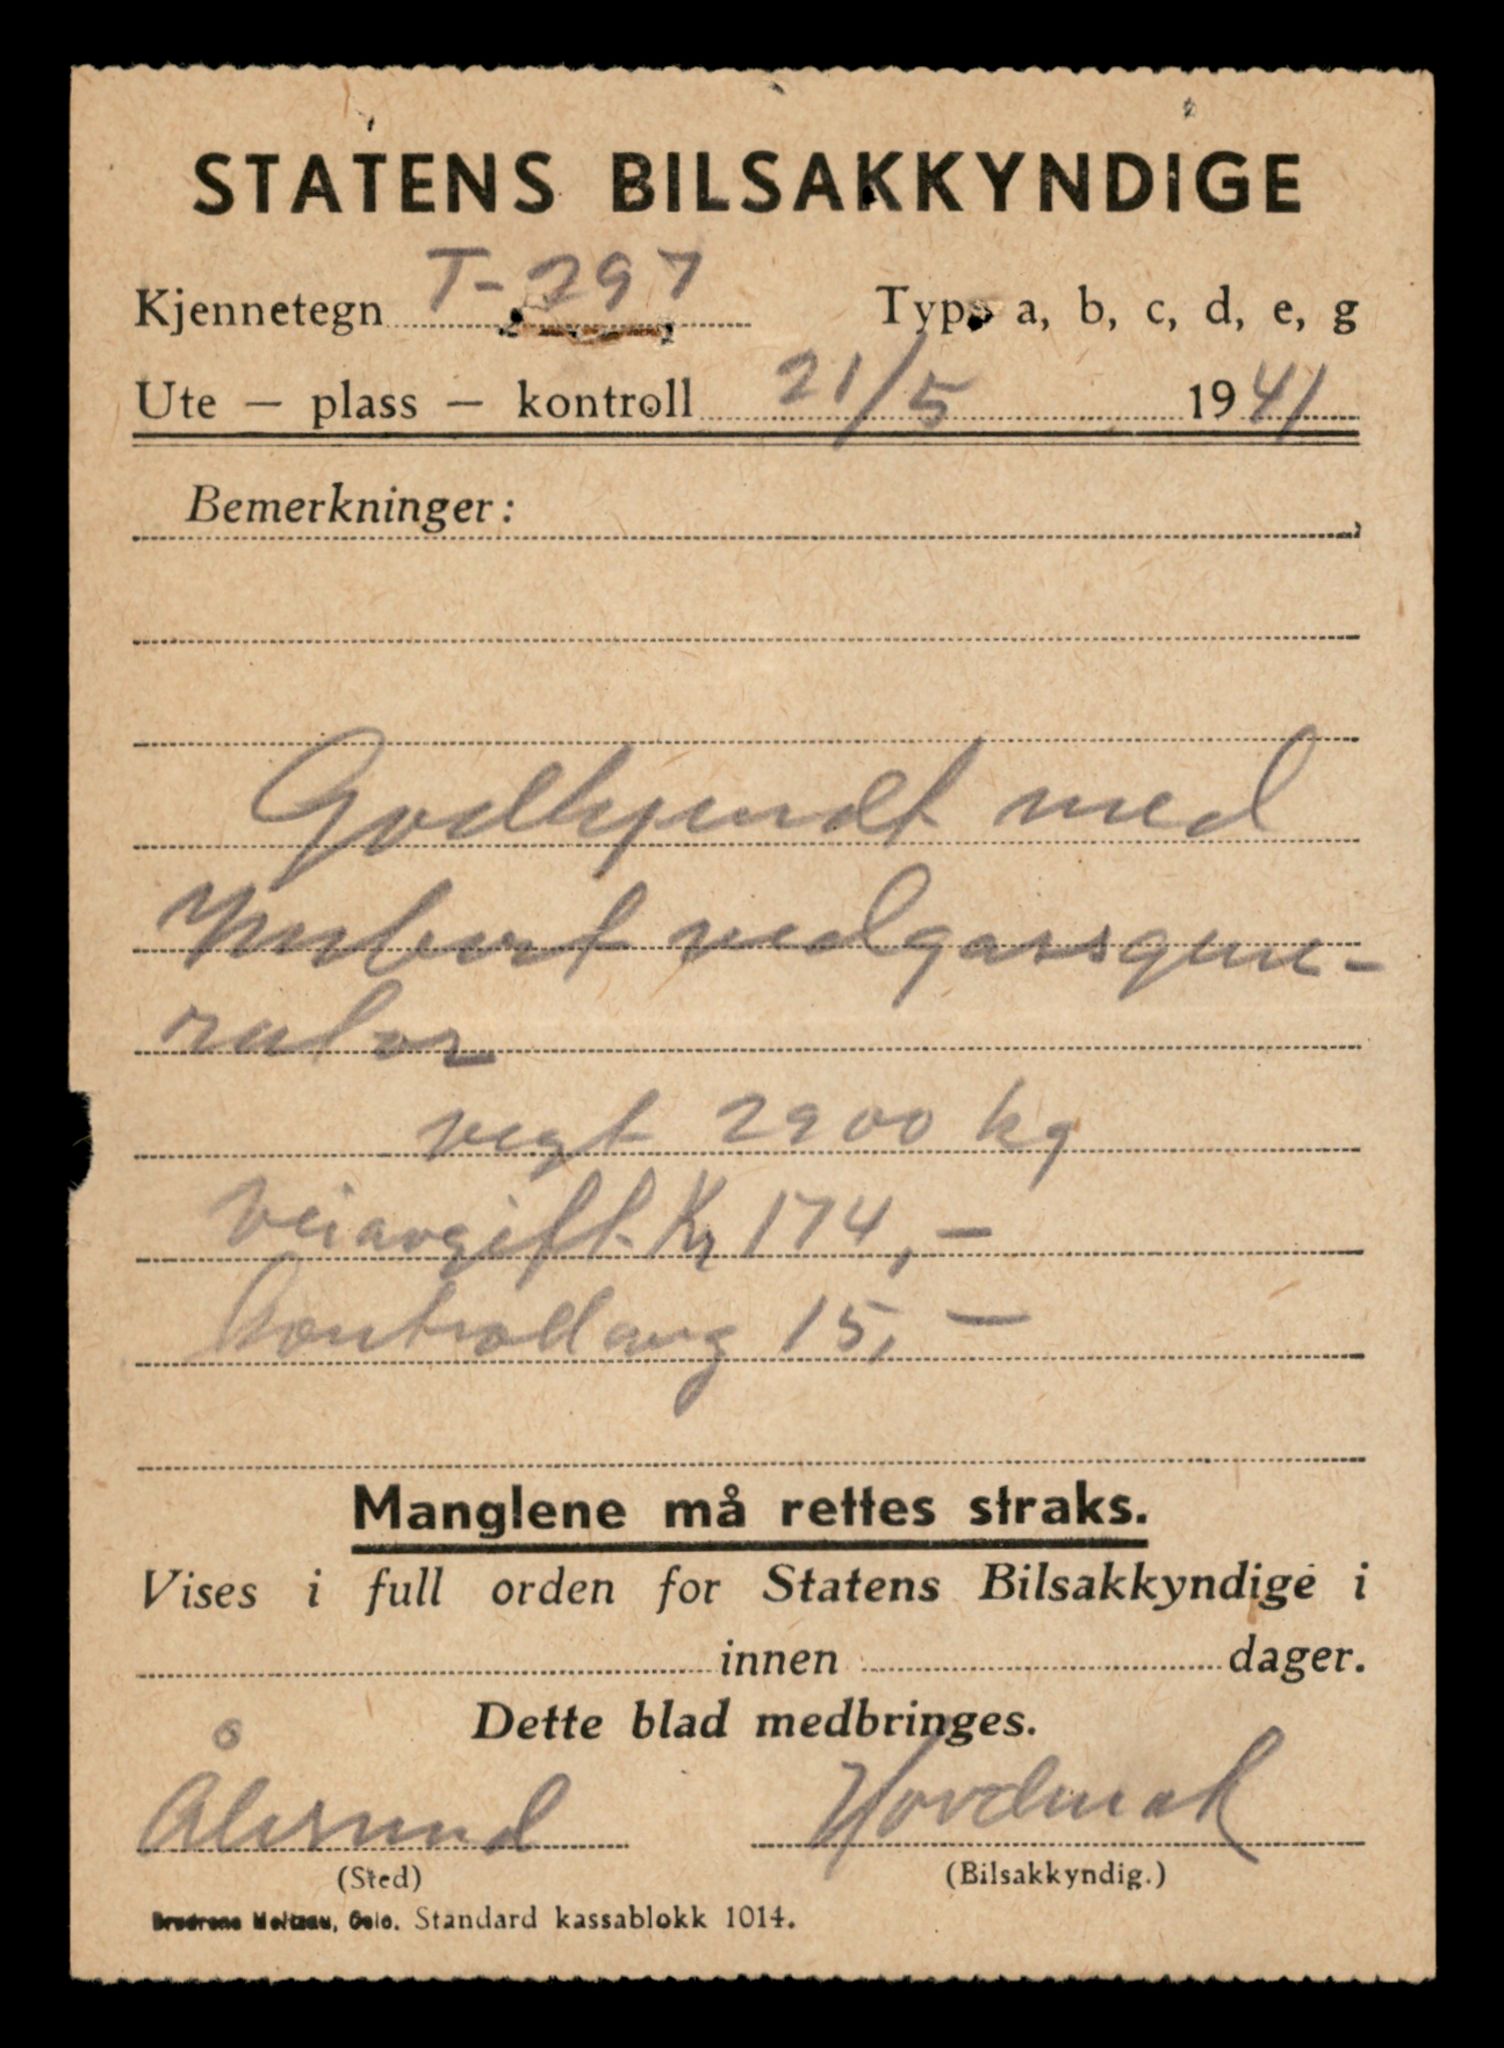 STATENS BILSAKKYNDIGE
Kjennetegn T-297 Type a, b, c, d, e, g
Ute — plass — kontroll 21/5 1941
Bemerkninger:
Godkjendt med
Imbert vedgassgene-
rator
vegt 2900 kg
Veiavgift Kr 174,-
Kontrollavg 15,-
Manglene må rettes straks.
Vises i full orden for Statens Bilsakkyndige i
innen dager.
Dette blad medbringes.
Ålesund
(Sted) (Bilsakkyndig.)
Brødrene Meltzau, Oslo. Standard kassablokk 1014.